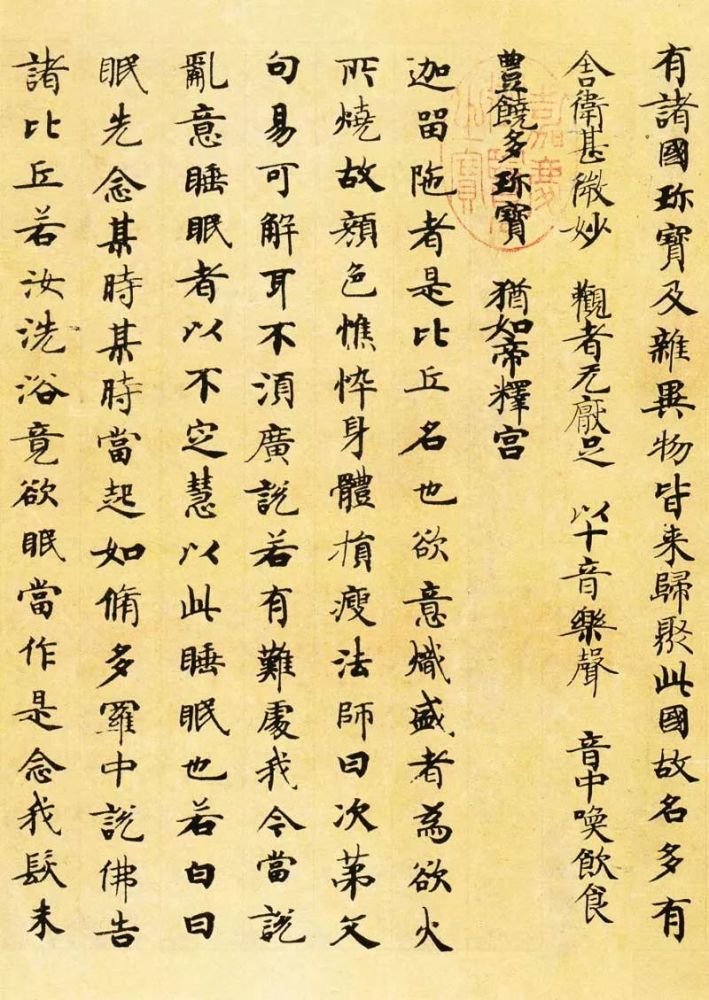 有諸國珎寶及雜異物皆来歸聚此國故名多有
舍衛甚微妙 觀者无厭足 以十音樂聲 音中喚飲食
豊饒多珎寶 猶如帝釋宫
迦留陁者是比丘名也欲意熾盛者為欲火
所燒故顔色憔悴身體損瘦法師曰次第文
句易可解耳不湏廣說若有難處我今當說
亂意睡眠者以不定慧以此睡眠也若白日
眠先念某時某時當起如脩多羅中說佛告
諸比丘若汝洗浴竟欲眠當作是念我髮未
嘉慶御覽之寶